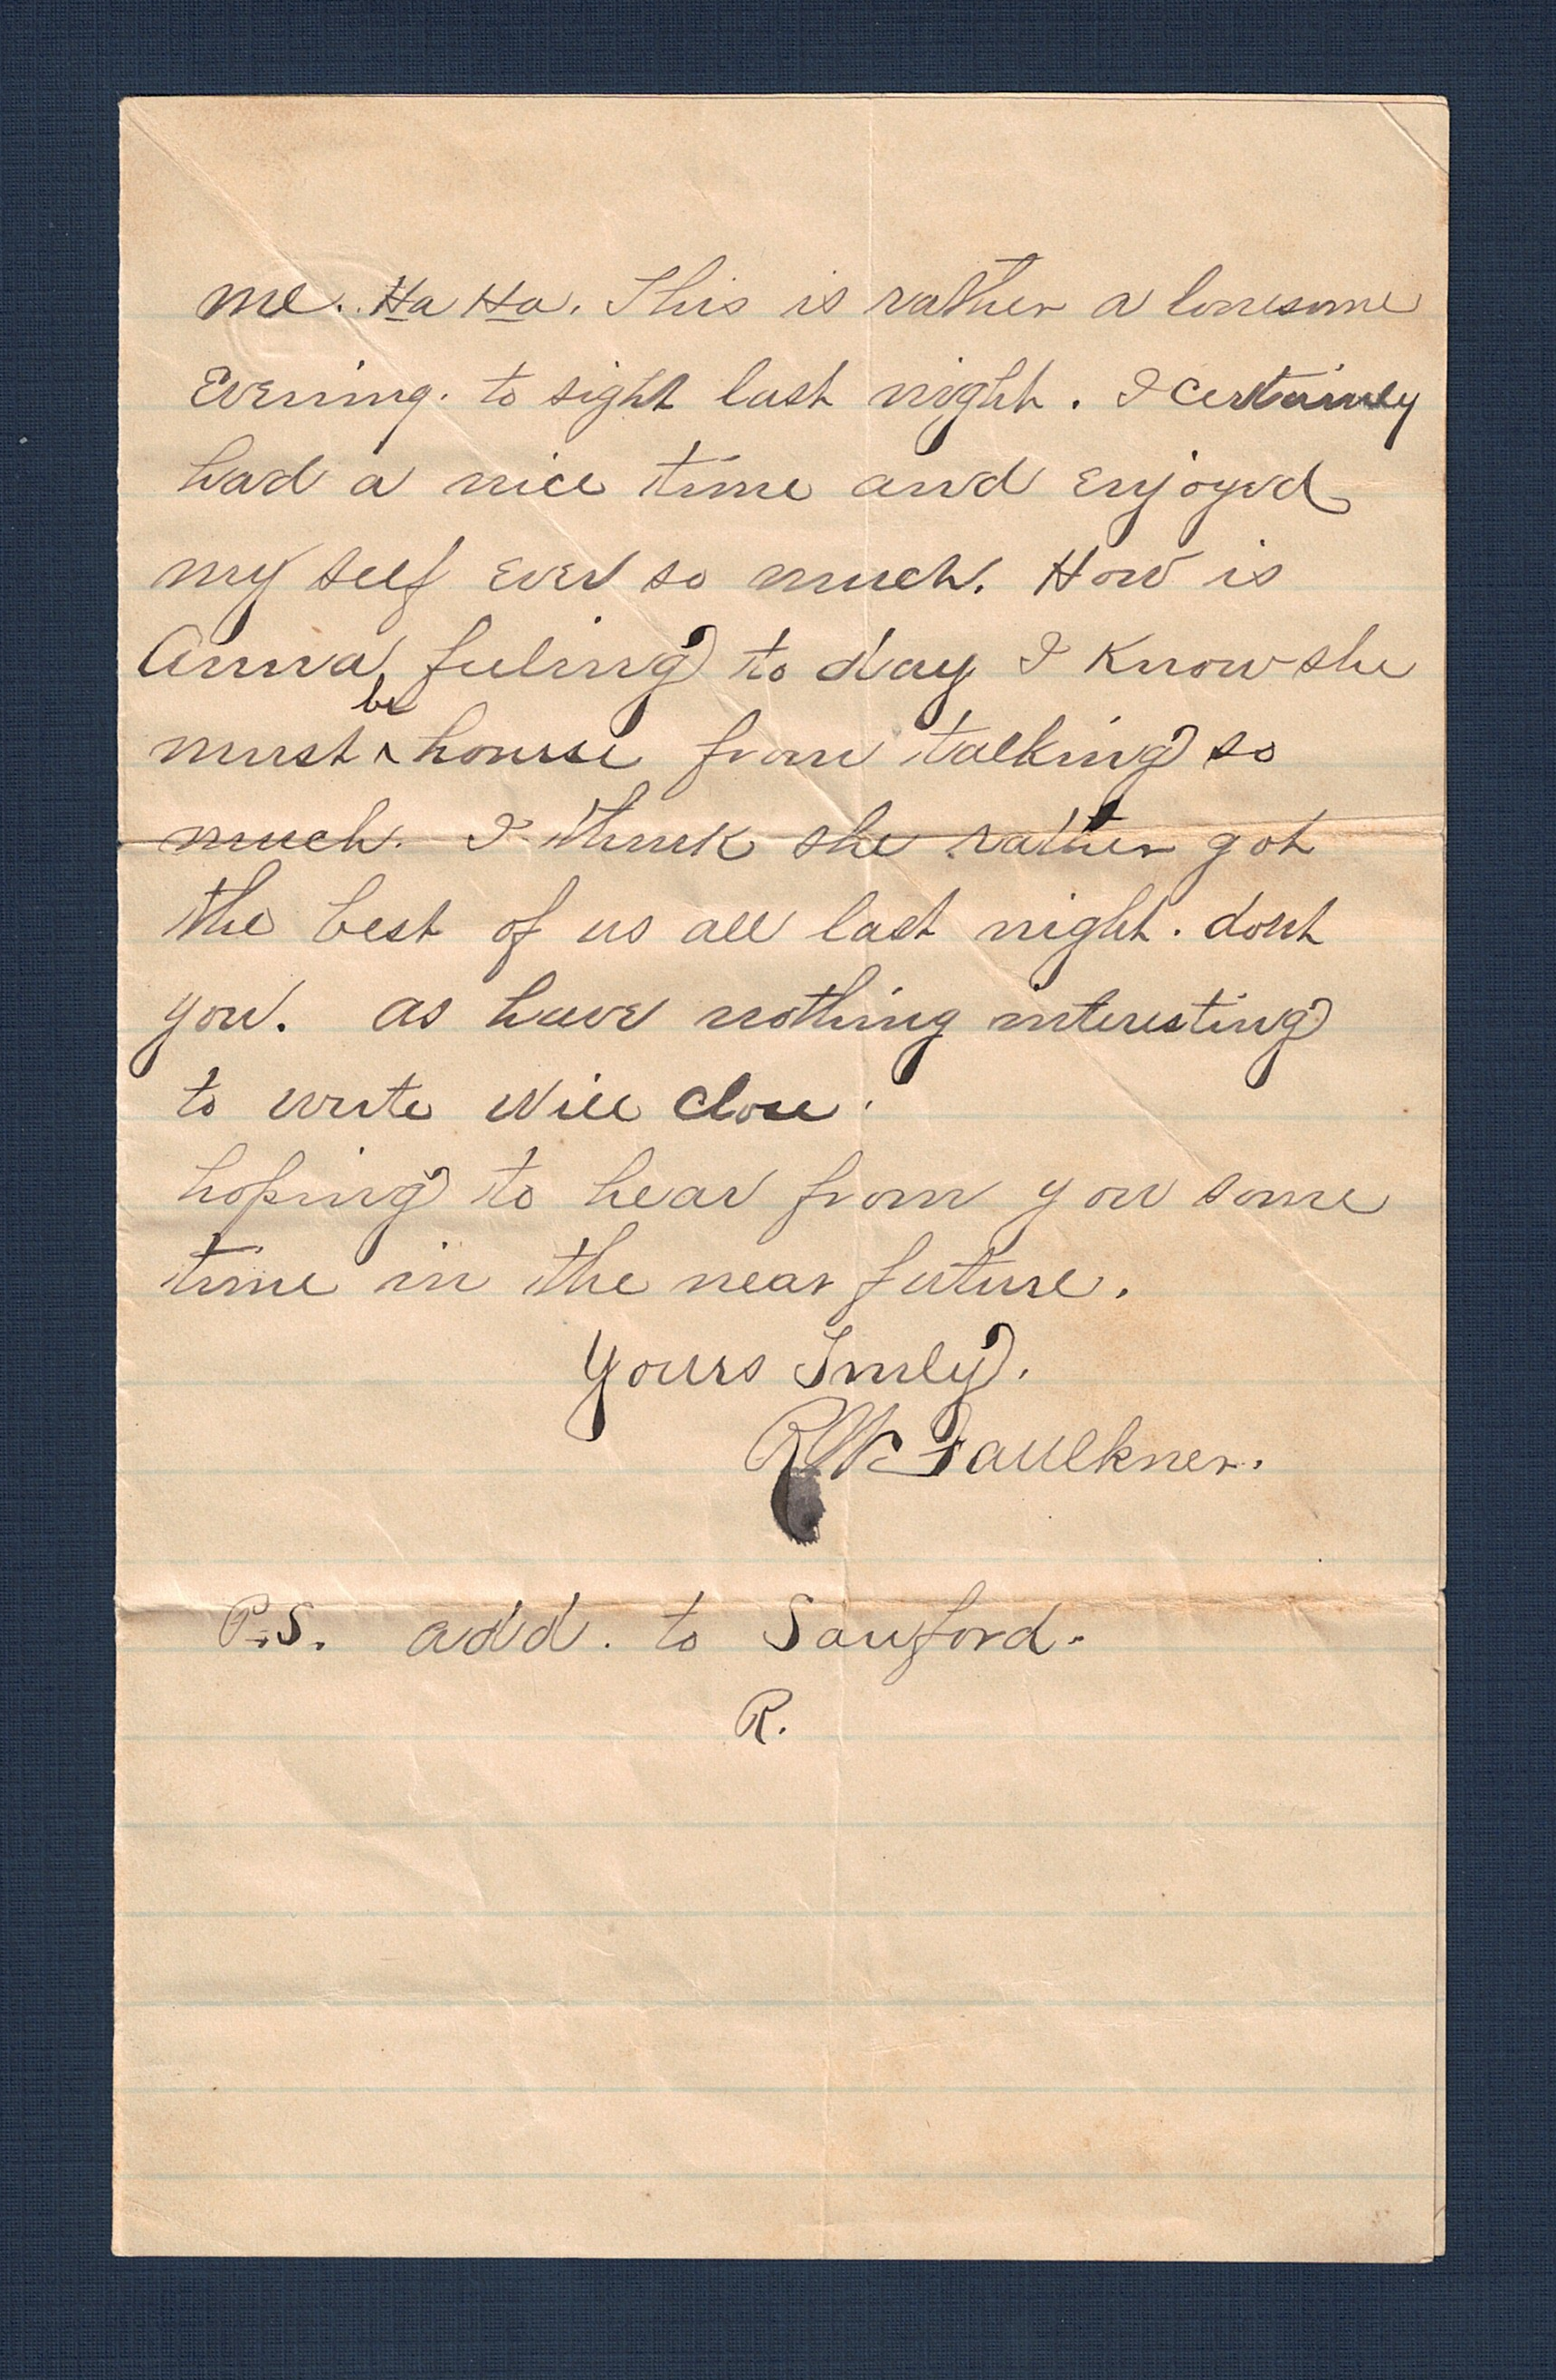 me. Ha Ha. This is rather a lonesome
Evening. to sight last night. I certainly
had a nice time and enjoyed
my self ever so much. How is
Anna feeling to day I know she
must be hourse from talking so
much. I think she rather got
the best of us all last night. dont
you. as have nothing interesting
to write will close.
hoping to hear from you some
time in the near future.
Yours Truly.
R Mc Faulkner.
P.S. add. to Sanford.
R.